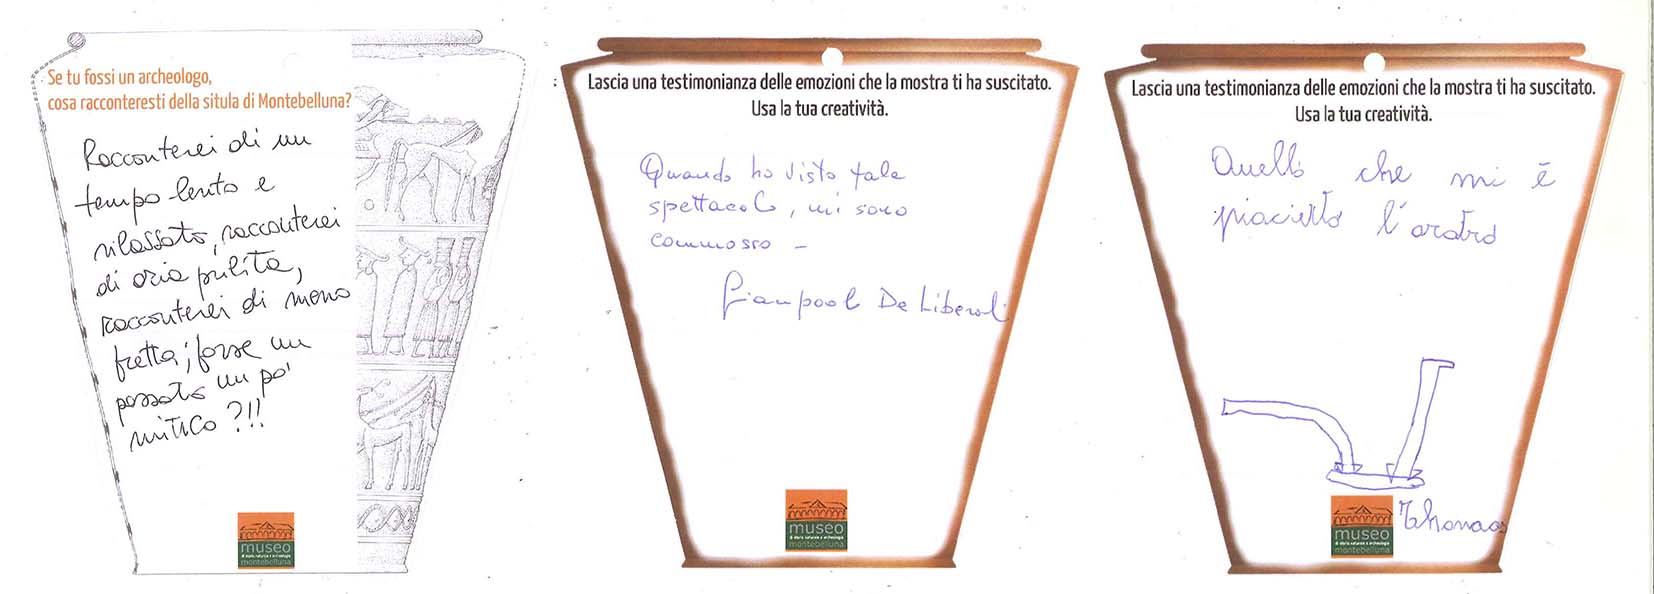 Se tu fossi un archeologo,
cosa racconteresti della situla di Montebelluna?
Racconterei di un
tempo lento e
rilassato, racconterei
di aria pulita,
racconterei di meno
fretta; forse un
passato un po'
mitico ?!!
museo
di storia naturale e archeologia
montebelluna
Lascia una testimonianza delle emozioni che la mostra ti ha suscitato.
Usa la tua creatività.
Quando ho visto tale
spettacolo, mi sono
commosso -
Gianpaolo De Liberali
museo
di storia naturale e archeologia
montebelluna
Lascia una testimonianza delle emozioni che la mostra ti ha suscitato.
Usa la tua creatività.
Quello che mi è
piaciuto l'aratro
Thomas
museo
di storia naturale e archeologia
montebelluna